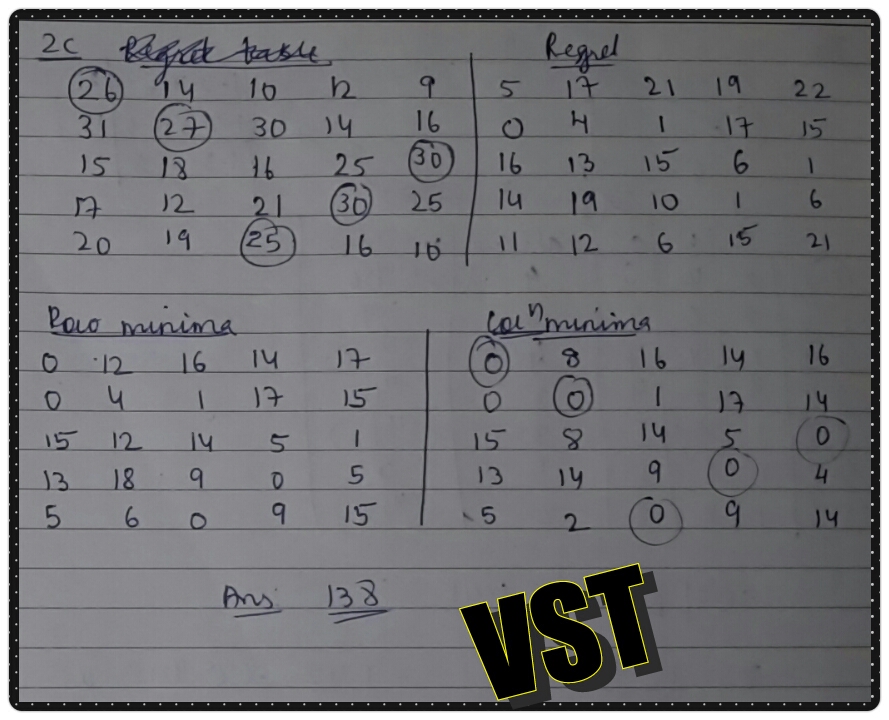 2c Regret
26 14 10 12 9 5 17 21 19 22
31 27 30 14 16 0 4 1 17 15
15 18 16 25 30 16 13 15 6 1
17 12 21 30 25 14 19 10 1 6
20 19 25 16 10 11 12 6 15 21
Row minima Colⁿ minima
0 12 16 14 17 0 8 16 14 16
0 4 1 17 15 0 0 1 17 14
15 12 14 5 1 15 8 14 5 0
13 18 9 0 5 13 14 9 0 4
5 6 0 9 15 5 2 0 9 14
Ans 138
VST